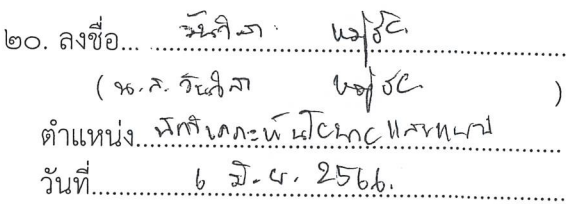 ๒๐. ลงชื่อ... วันวิสา
(น.ส. วันวิสา )
ตำแหน่ง นักวิเคราะห์นโยบายและแผน
วันที่ ๖ มิ.ย. 2566.